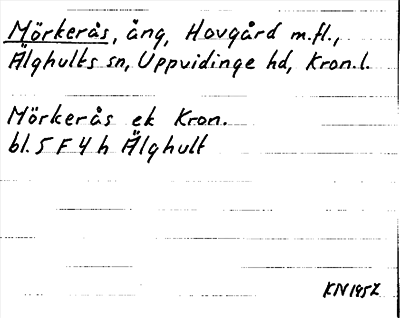 Mörkerås, äng, Hovgård m.fl.,
Älghults sn, Uppvidinge hd, Kron.l.
Mörkerås ek Kron.
bl. 5 F 4 h Älghult
KN 1957